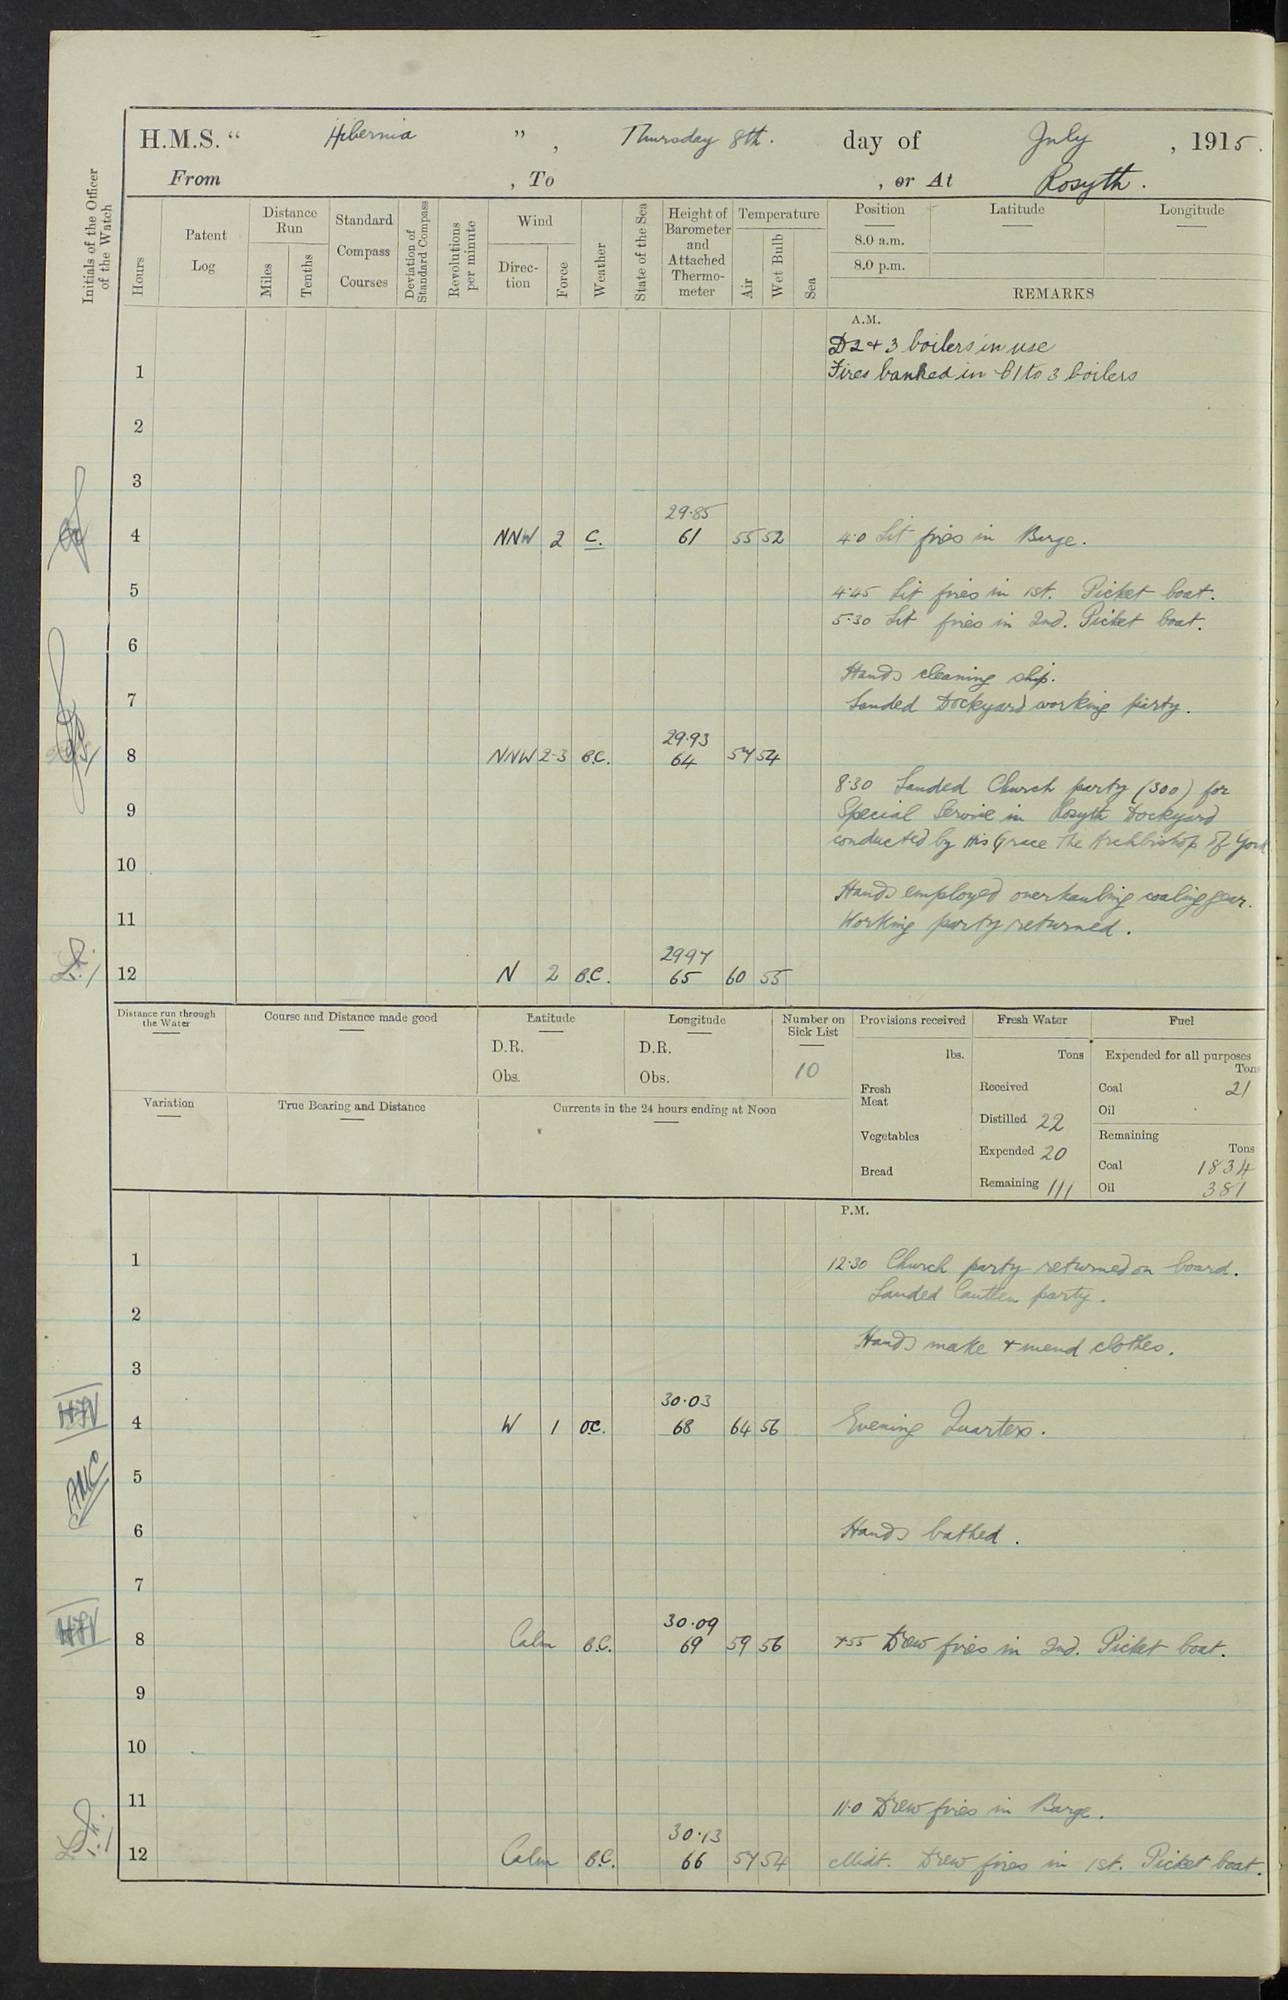 H.M.S. “ Hibernia ” , Thursday 8th. day of July , 1915.
From , To , or At Rosyth.
Initials of the Officer of the Watch
Hours
Patent Log
Distance Run
Miles
Tenths
Standard Compass Courses
Deviation of Standard Compass
Revolutions per minute
Wind
Direc-tion
Force
Weather
State of the Sea
Height of Barometer and Attached Thermo-meter
Temperature
Air
Wet Bulb
Sea
Position Latitude Longitude
8.0 a.m.
8.0 p.m.
REMARKS
A.M.
D2 & 3 boilers in use
1 Fires banked in B1 to 3 boilers
2
3
29.85
4 NNW 2 C. 61 55 52 4.0 Lit fires in Barge.
5 4.45 Lit fires in 1st. Picket boat.
5.30 Lit fires in 2nd. Picket boat.
6
Hands cleaning ship.
7 Landed Dockyard working party.
29.93
8 NNW 2-3 B.C. 64 57 54
8.30 Landed Church party (300) for
9 Special Service in Rosyth Dockyard
conducted by His Grace The Archbishop of York
10
Hands employed overhauling coaling gear.
11 Working party returned.
2997
12 N 2 B.C. 65 60 55
Distance run through the Water
Course and Distance made good
Latitude
D.R.
Obs.
Longitude
D.R.
Obs.
Number on Sick List
10
Provisions received
lbs.
Fresh Meat
Vegetables
Bread
Fresh Water
Tons
Received
Distilled 22
Expended 20
Remaining 111
Fuel
Expended for all purposes
Tons
Coal 21
Oil
Remaining
Tons
Coal 1834
Oil 381
Variation
True Bearing and Distance
Currents in the 24 hours ending at Noon
P.M.
1 12.30 Church party returned on board.
Landed Canteen party.
2
Hands make & mend clothes.
3
30.03
4 W 1 O.C. 68 64 56 Evening Quarters.
5
6 Hands bathed.
7
30.09
8 Calm B.C. 69 59 56 7.55 Drew fires in 2nd. Picket boat.
9
10
11 11.0 Drew fires in Barge.
30.13
12 Calm B.C. 66 57 54 Midt. Drew fires in 1st. Picket boat.